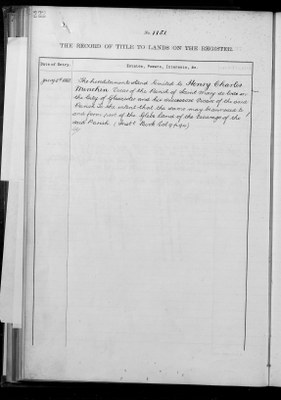 No. 1151
THE RECORD OF TITLE TO LANDS ON THE REGISTER.
Date of Entry.
Estates, Powers, Interests, &c.
The hereditaments stand limited to Henry Charles
Minchin Vicar of the Parish of Saint Mary de Lode in
the City of Gloucester and his successors Vicars of the said
Parish to the intent that the same may be annexed to
and form part of the Glebe Land of the Vicarage of the
said Parish